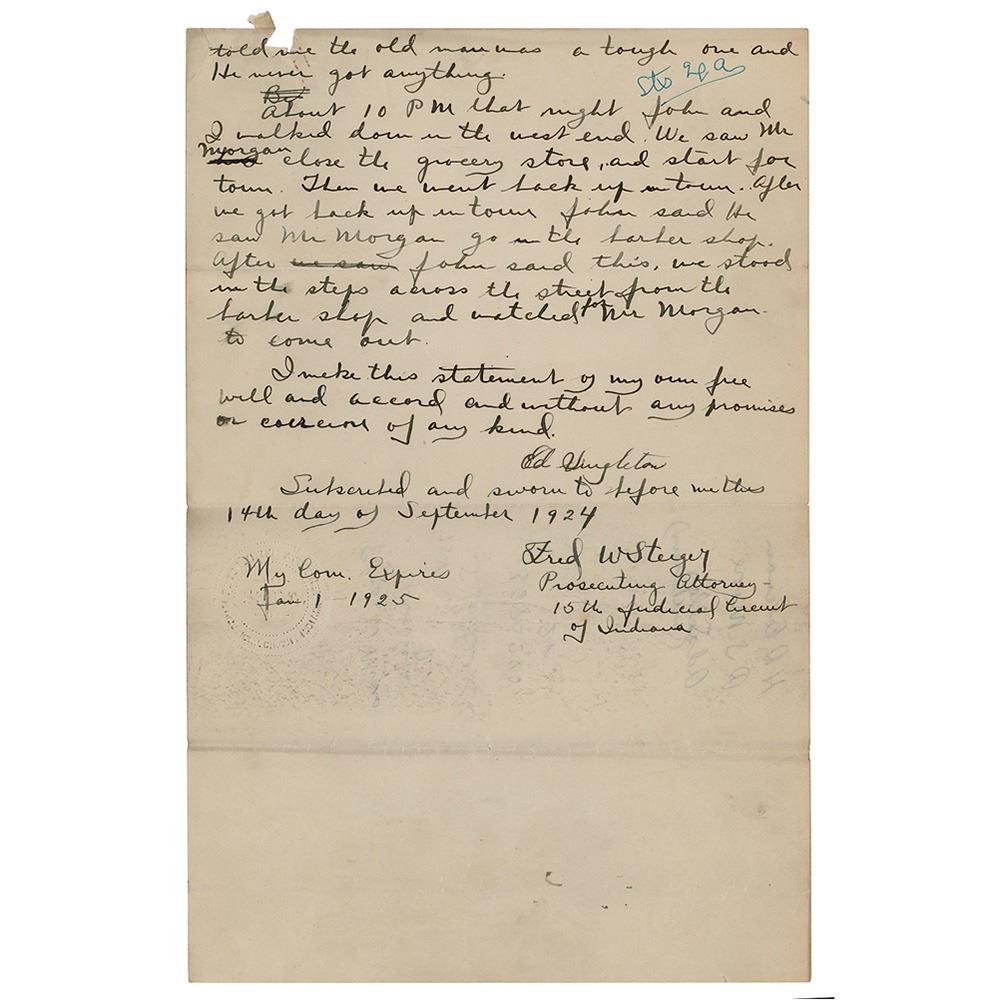 told me the old man was a tough one and
He never got anything.
Sts 2 pa
About 10 PM that night John and
I walked down in the west end. We saw Mr
Morgan close the grocery store, and start for
town. Then we went back up in town. After
we got back up in town John said He
saw Mr Morgan go in the barber shop.
After we saw John said this, we stood
in the steps across the street from the
barber shop and watched for Mr Morgan
to come out.
I make this statement of my own free
will and accord and without any promises
or coercion of any kind.
Ed Singleton
Subscribed and sworn to before me this
14th day of September 1924
Fred W Steiger
My Com. Expires
Prosecuting Attorney
Jan 1 - 1925
15th Judicial Circuit
of Indiana